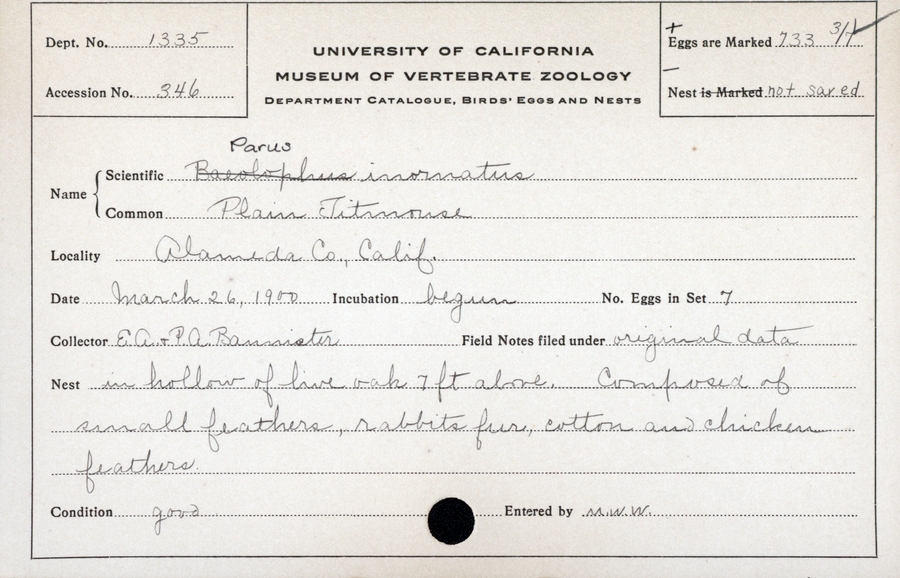 Dept. No. 1335
Accession No. 346
UNIVERSITY OF CALIFORNIA
MUSEUM OF VERTEBRATE ZOOLOGY
DEPARTMENT CATALOGUE, BIRDS' EGGS AND NESTS
+
Eggs are Marked 733 3/7
—
Nest is Marked not saved
Parus
Name { Scientific Baeolophus inornatus
Common Plain Titmouse
Locality Alameda Co., Calif.
Date March 26, 1900 Incubation begun No. Eggs in Set 7
Collector E.A. + P.A. Bannister Field Notes filed under original data
Nest in hollow of live oak 7 ft above. Composed of
small feathers, rabbits fur, cotton and chicken
feathers.
Condition good Entered by M.W.W.